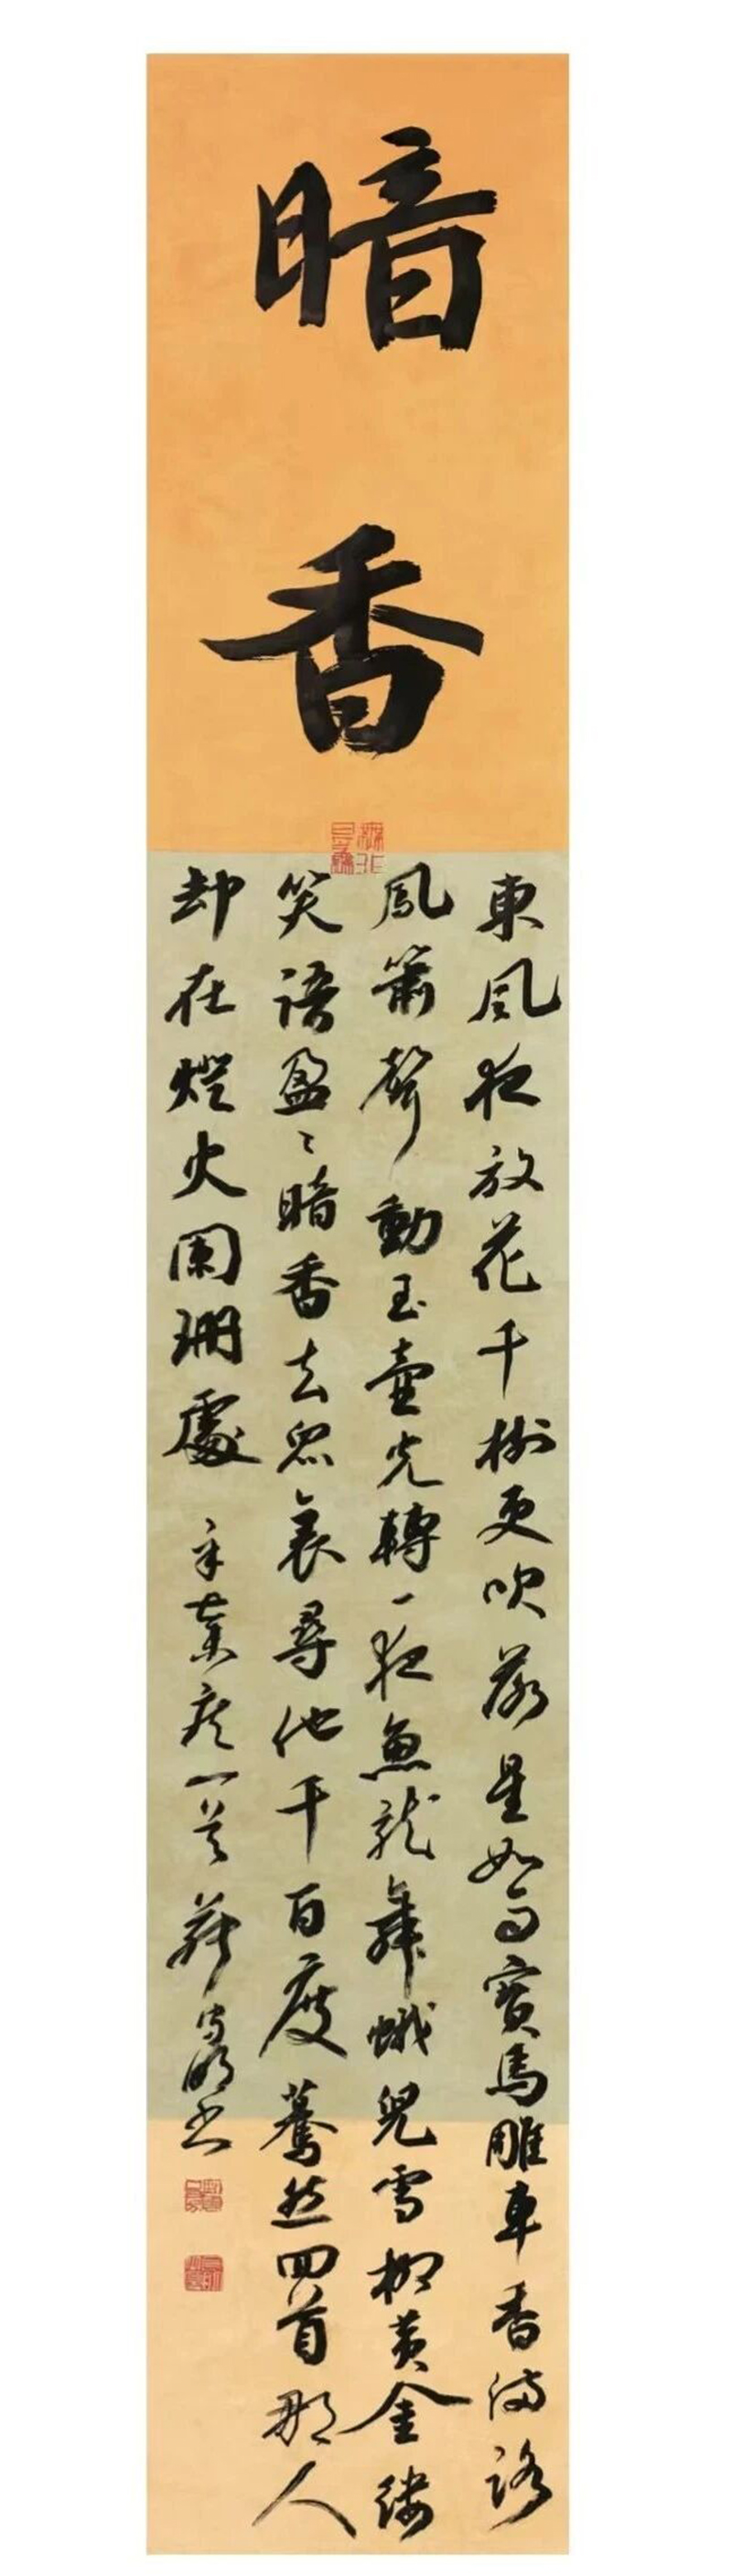 暗香
東風夜放花千樹更吹落星如雨寶馬雕車香滿路
鳳簫聲動玉壺光轉一夜魚龍舞蛾兒雪柳黃金縷
笑語盈〻暗香去眾裏尋他千百度驀然回首那人
却在燈火闌珊處 辛棄疾一首 书